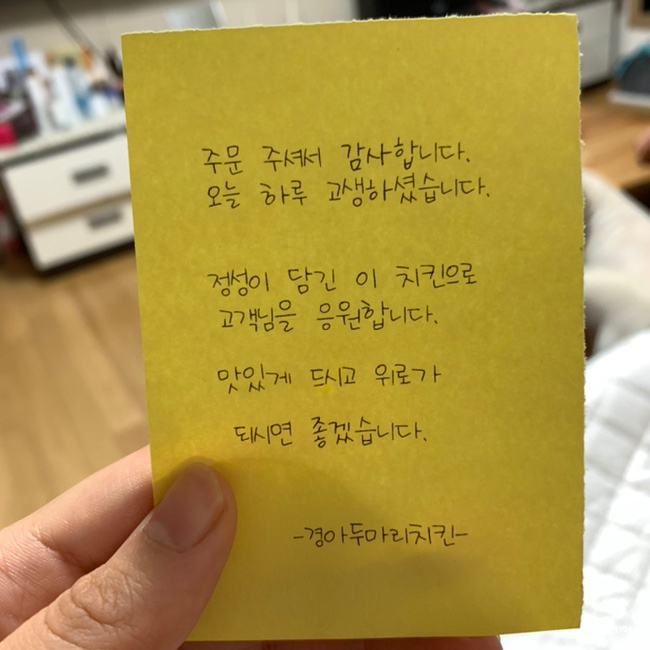 주문 주셔서 감사합니다.
오늘 하루 고생하셨습니다.
정성이 담긴 이 치킨으로
고객님을 응원합니다.
맛있게 드시고 위로가
되시면 좋겠습니다.
-경아두마리치킨-